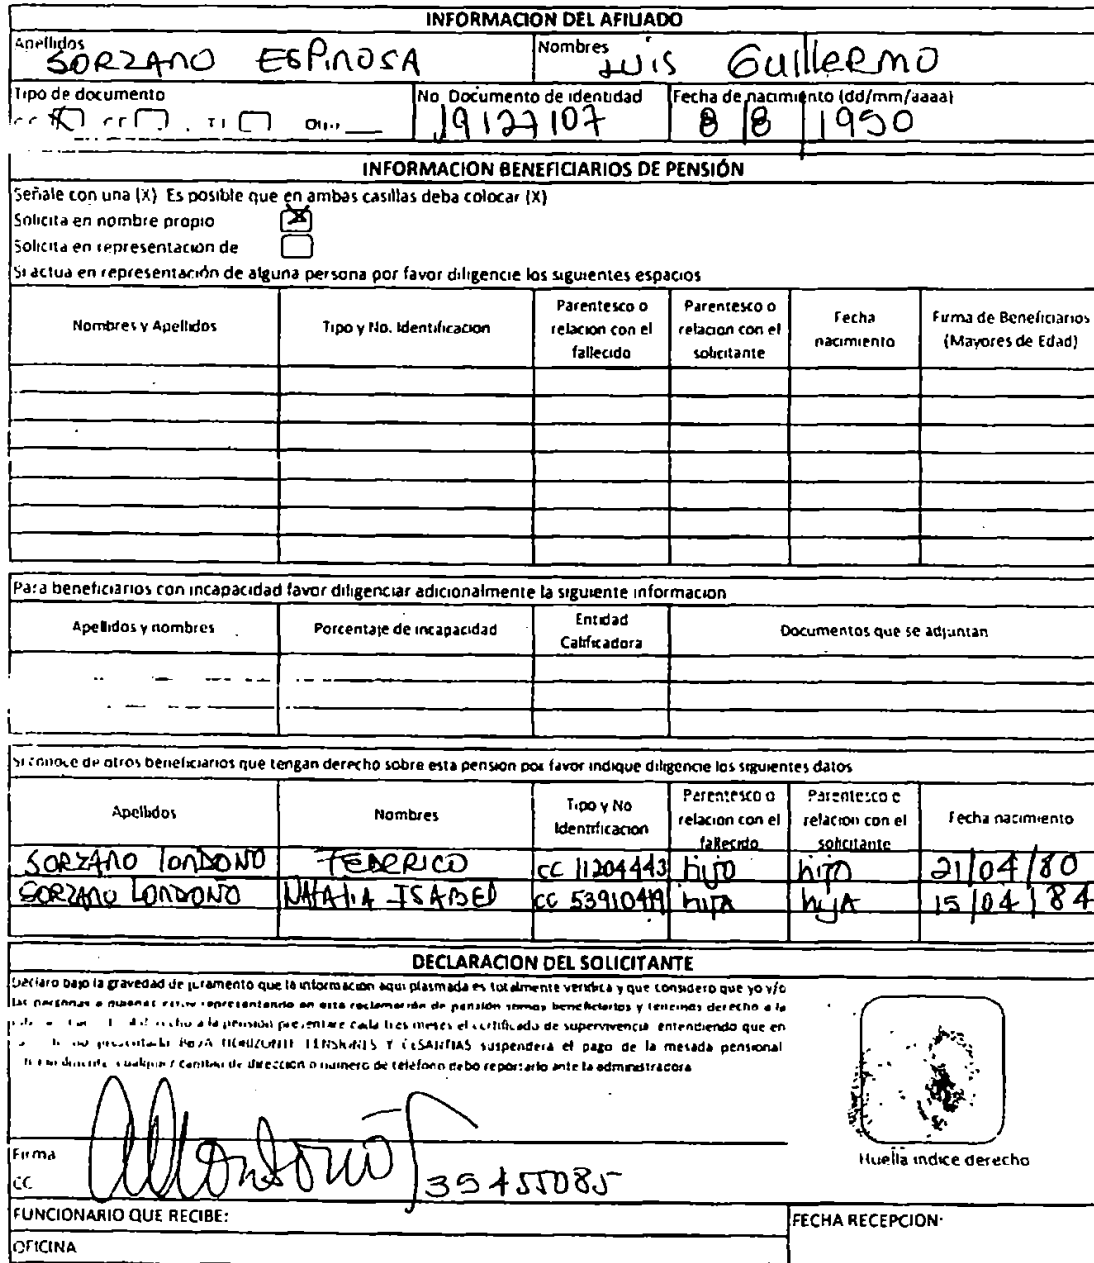 INFORMACION DEL AFILIADO
Apellidos Nombres
SORZANO ESPINOSA LUIS GUILLERMO
Tipo de documento No. Documento de identidad Fecha de nacimiento (dd/mm/aaaa)
19127107 8 8 1950
INFORMACION BENEFICIARIOS DE PENSIÓN
Señale con una (X) Es posible que en ambas casillas deba colocar (X)
Solicita en nombre propio X
Solicita en representacion de
Si actua en representación de alguna persona por favor diligencie los siguientes espacios
Nombres y Apellidos Tipo y No. Identificacion Parentesco o relacion con el fallecido Parentesco o relacion con el solicitante Fecha nacimiento Firma de Beneficiarios (Mayores de Edad)
Para beneficiarios con incapacidad favor diligenciar adicionalmente la siguiente informacion
Apellidos y nombres Porcentaje de incapacidad Entidad Calificadora Documentos que se adjuntan
Si conoce de otros beneficiarios que tengan derecho sobre esta pension por favor indique diligencie los siguientes datos
Apellidos Nombres Tipo y No Identificacion Parentesco o relacion con el fallecido Parentesco o relacion con el solicitante Fecha nacimiento
SORZANO LONDOÑO FEDERICO CC 11204443 hijo hijo 21/04/80
SORZANO LONDOÑO NATALIA ISABEL CC hija hija 15/04/84
DECLARACION DEL SOLICITANTE
Declaro bajo la gravedad de juramento que la información aqui plasmada es totalmente veridica y que considero que yo y/o
las personas a quienes estoy representando en esta reclamación de pensión somos beneficiarios y tenemos derecho a la
a la pensión presentare cada tres meses el certificado de supervivencia entendiendo que en
HORIZONTE PENSIONES Y CESANTIAS suspendera el pago de la mesada pensional
cualquier cambio de dirección o numero de telefono debo reportarlo ante la administradora
Firma
CC 39455085
Huella indice derecho
FUNCIONARIO QUE RECIBE: FECHA RECEPCION:
OFICINA